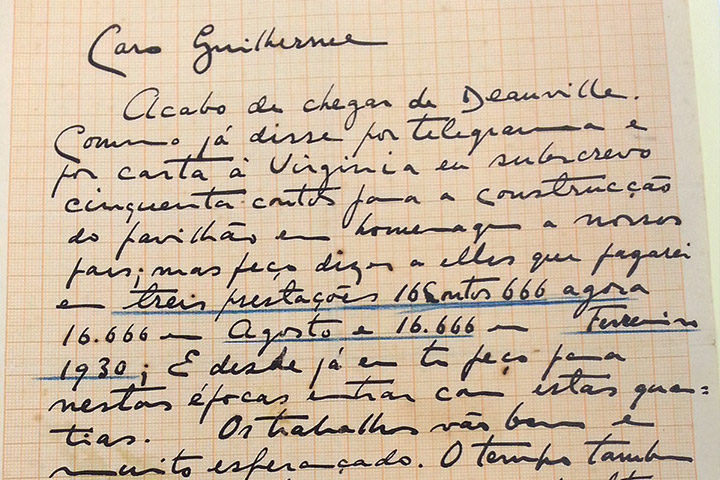 Caro Guilherme
Acabo de chegar de Deauville.
Como já disse por telegramma e
por carta à Virginia eu subscrevo
cinquenta contos para a construcção
do pavilhão em homenagem a nossos
paes; mas peço dizer a elles que pagarei
em treis prestações 16Contos 666 agora
16.666 em Agosto e 16.666 em Fevereiro
1930; E desde já eu te peço para
nestas épocas entrar com estas quan=
tias. Os trabalhos vão bem e
muito esperançado. O tempo tambem